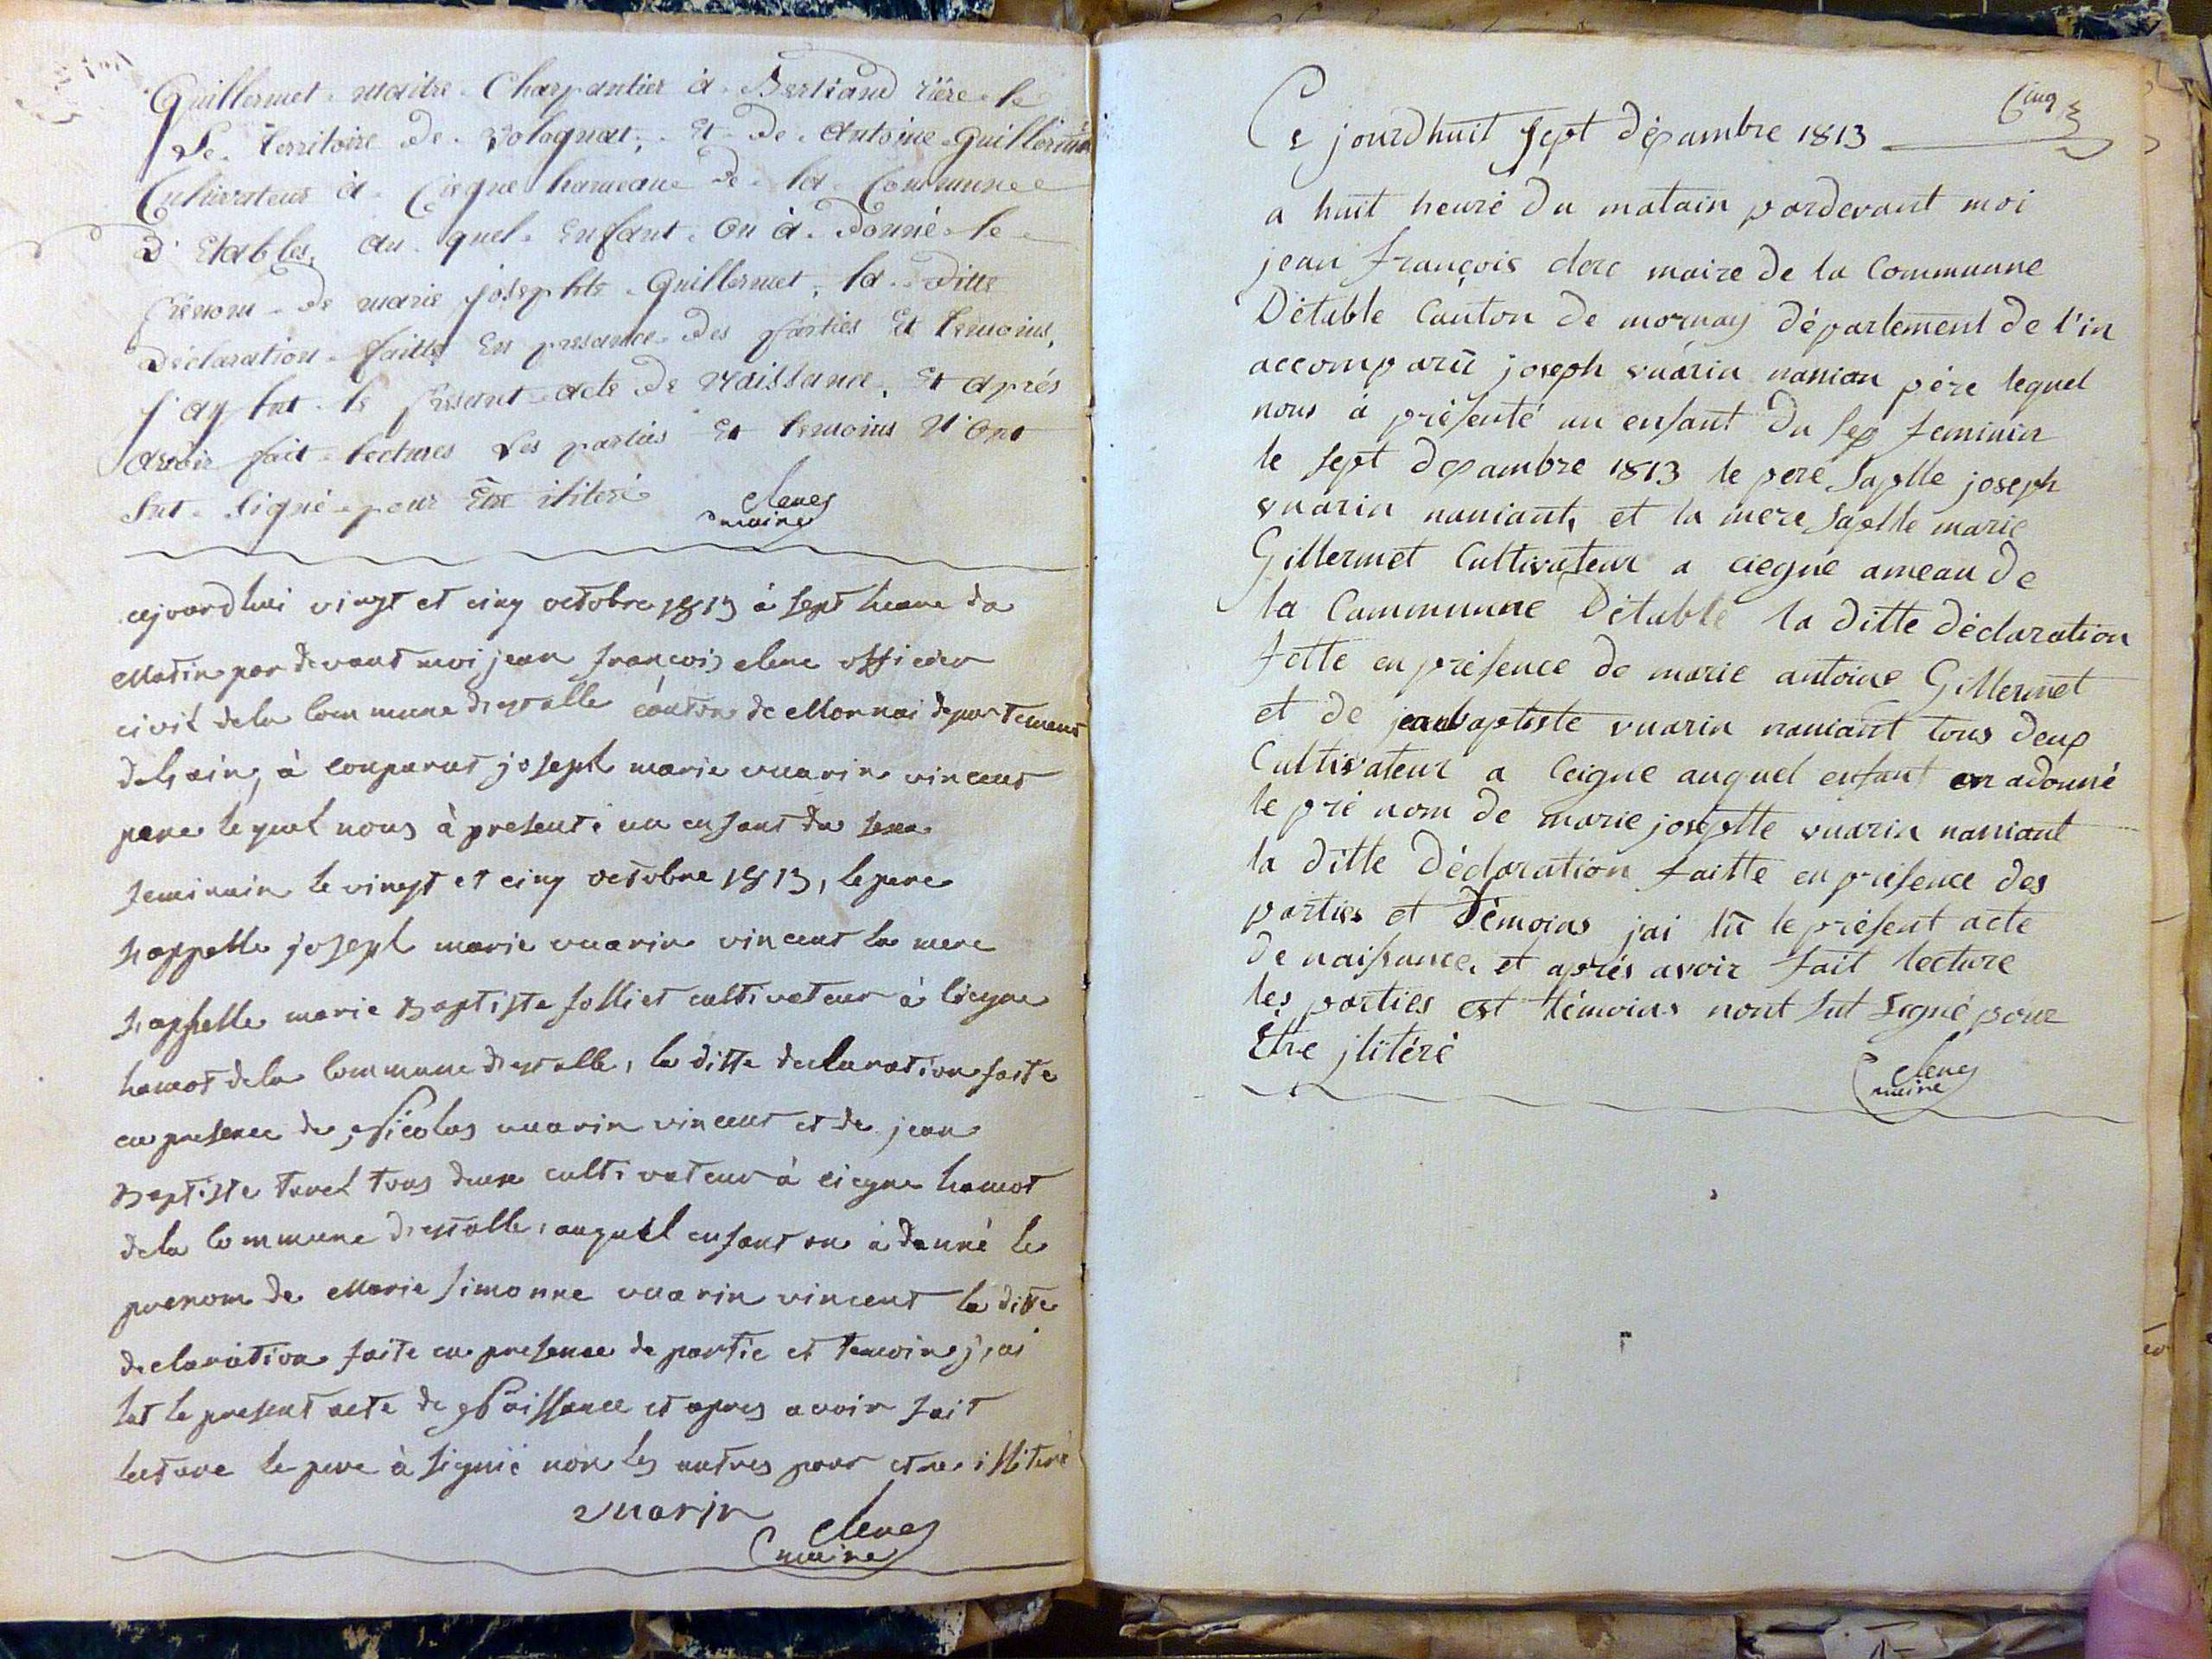 Guillermet maitre Charpantier à Bertiand rière le
Le territoire de Volognat, Et de Antoine Guillermet
Cultivateur à Ciegne hameaue de la Communee
D'Etables, au quel Enfant On à donné le
Prénom de marie josephte Guillermet, la ditte
Déclaration faitte En presance des parties Et temoins,
j'ay lut le présant acte de Naissance, Et après
avoir fait lectures Les parties Et temoins N'ont
sut Signé pour Être iliteré
clerc
maire
cejourdhui vingt et cinq octobre 1813 à sept heure du
Matin par devant moi jean françois clerc officier
civil dela Commune d'estable canton de Mornai departement
delain, à comparut joseph marie vuarin vincent
pere lequel nous à presenté un enfant du sexe
feminin le vingt et cinq octobre 1813, le pere
s'appelle joseph marie vuarin vincent la mere
s'appelle marie Baptiste folliet cultivateur à Ciegne
hamot dela Commune d'estable, la ditte declaration faite
en presence de Nicolas vuarin vincent et de jean
Baptiste turel tous deux cultivateur à ciegne hamot
dela Commune d'estable, auquel enfant on à donné le
prenom de Marie simonne vuarin vincent la ditte
declaration faite en presence de partie et temoin j'ai
lut le present acte de Naissance et apres avoir fait
lecture le pere à signié non les autres pour etre illiteré
vuarin
clerc
maire
Cinq
Ce jourdhuit sept déçambre 1813
a huit heure du matain pardevant moi
jean françois clerc maire de la Communne
Détable Canton de mornay département de l'in
accomparû joseph vuarin naniau père lequel
nous à présenté un enfant du sex feminin
le sept deçambre 1813 le pere saplle joseph
vuarin naniant, et la mere saplle marie
Gillermet Cultivateur a ciegne ameau de
la Communne Détable la ditte déclaration
fette en présence de marie antoine Gillermet
et de jean baptiste vuarin naniant tous deux
Cultivateur a Ceigne auquel enfant on adonné
le pré nom de marie joseptte vuarin naniant
la ditte Déclaration faitte en présence des
parties et Témoins jai lû le présent acte
de naissance, et aprés avoir fait lecture
les parties est témoins nont sut signé pour
Etre jlitéré
clerc
maire